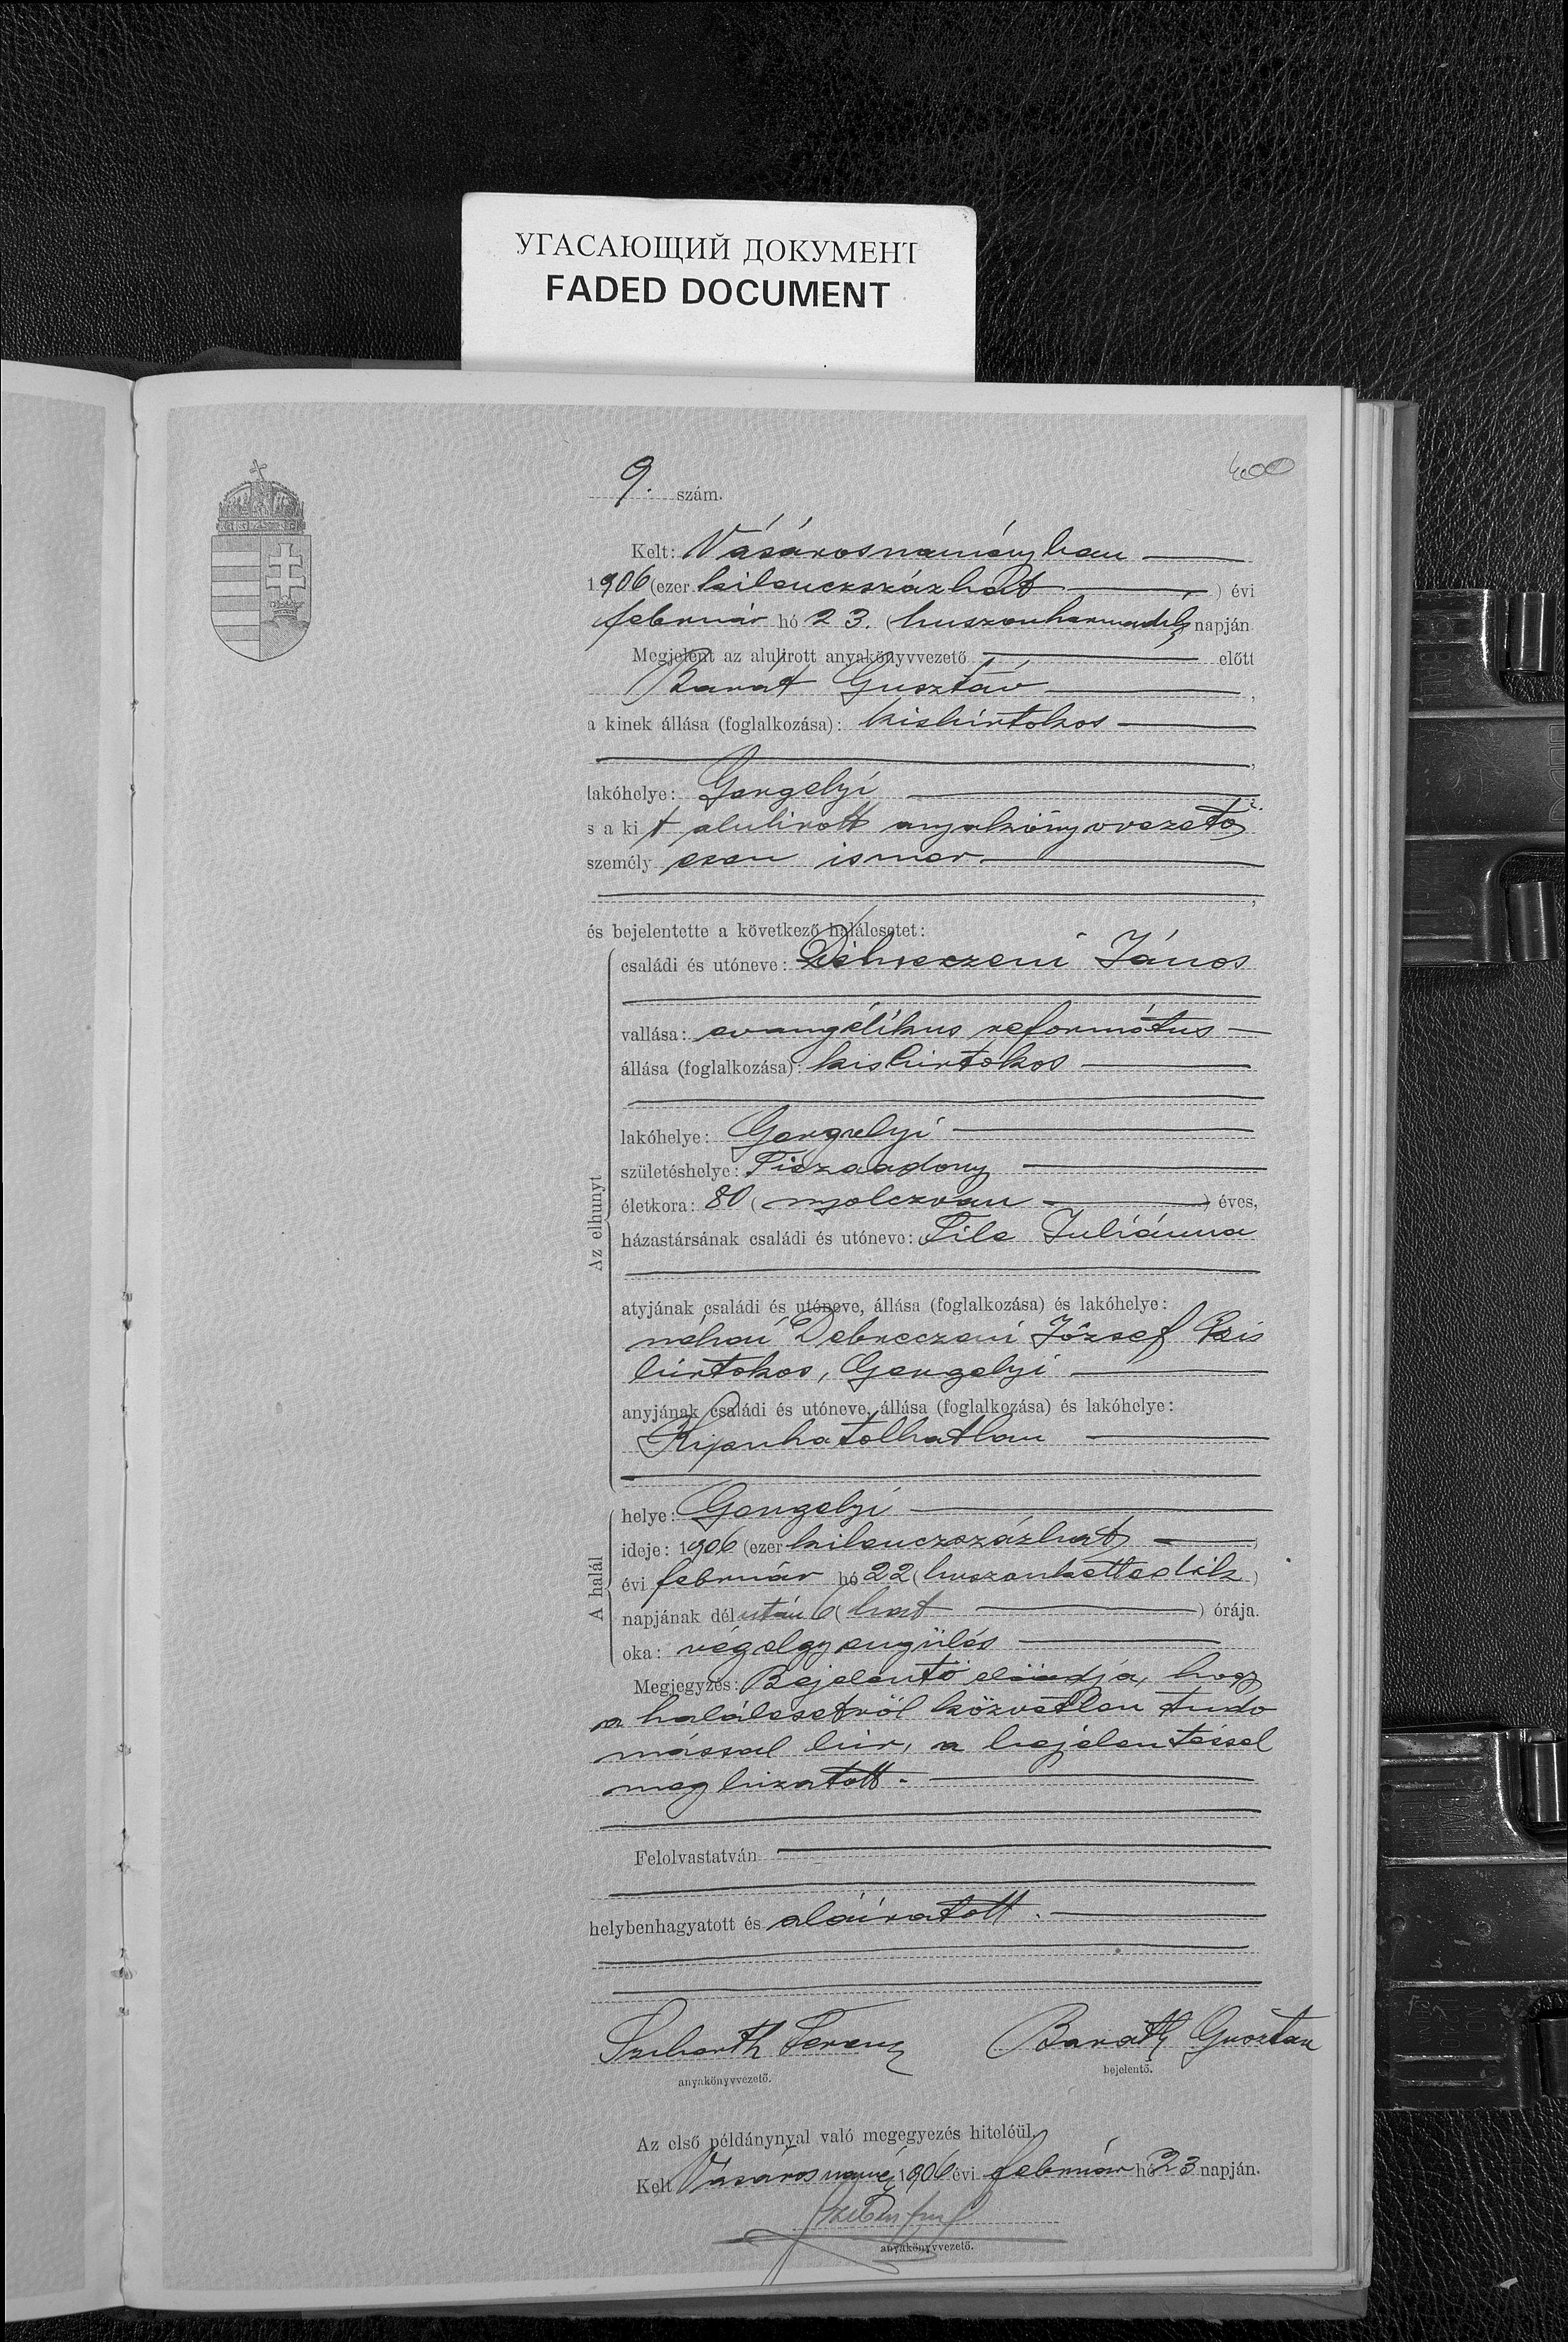 УГАСАЮЩИЙ ДОКУМЕНТ
FADED DOCUMENT
400
9. szám.
Kelt: Vásárosnaményban
1906 (ezer kilenczszázhat) évi
február hó 23. (huszonharmadik) napján
Megjelent az alulirott anyakönyvvezető előtt
Barát Gusztáv,
a kinek állása (foglalkozása): kisbirtokos
lakóhelye: Gergelyi
s a kit alulirott anyakönyvvezető
személyesen ismer
és bejelentette a következő halálesetet:
Az elhunyt
családi és utóneve: Debreczeni János
vallása: evangélikus református
állása (foglalkozása): kisbirtokos
lakóhelye: Gergelyi
születéshelye: Tiszaadony
életkora: 80 (nyolczvan) éves,
házastársának családi és utóneve: File Juliánna
atyjának családi és utóneve, állása (foglalkozása) és lakóhelye:
néhai Debreczeni József kis
birtokos, Gergelyi
anyjának családi és utóneve, állása (foglalkozása) és lakóhelye:
Kipuhatolhatlan
A halál
helye: Gergelyi
ideje: 1906 (ezer kilenczszázhat)
évi február hó 22 (huszonkettedik)
napjának délután 6 (hat) órája.
oka: végelgyengülés
Megjegyzés: Bejelentő előadja, hogy
a halálesetről közvetlen tudo
mással bir, a bejelentéssel
megbizatott.
Felolvastatván
helybenhagyatott és aláiratott.
Ferencz Baráth Gusztav
anyakönyvvezető. bejelentő.
Az első példánynyal való megegyezés hiteléül.
Kelt Vásárosnamény 1906 évi február hó 23 napján.
anyakönyvvezető.